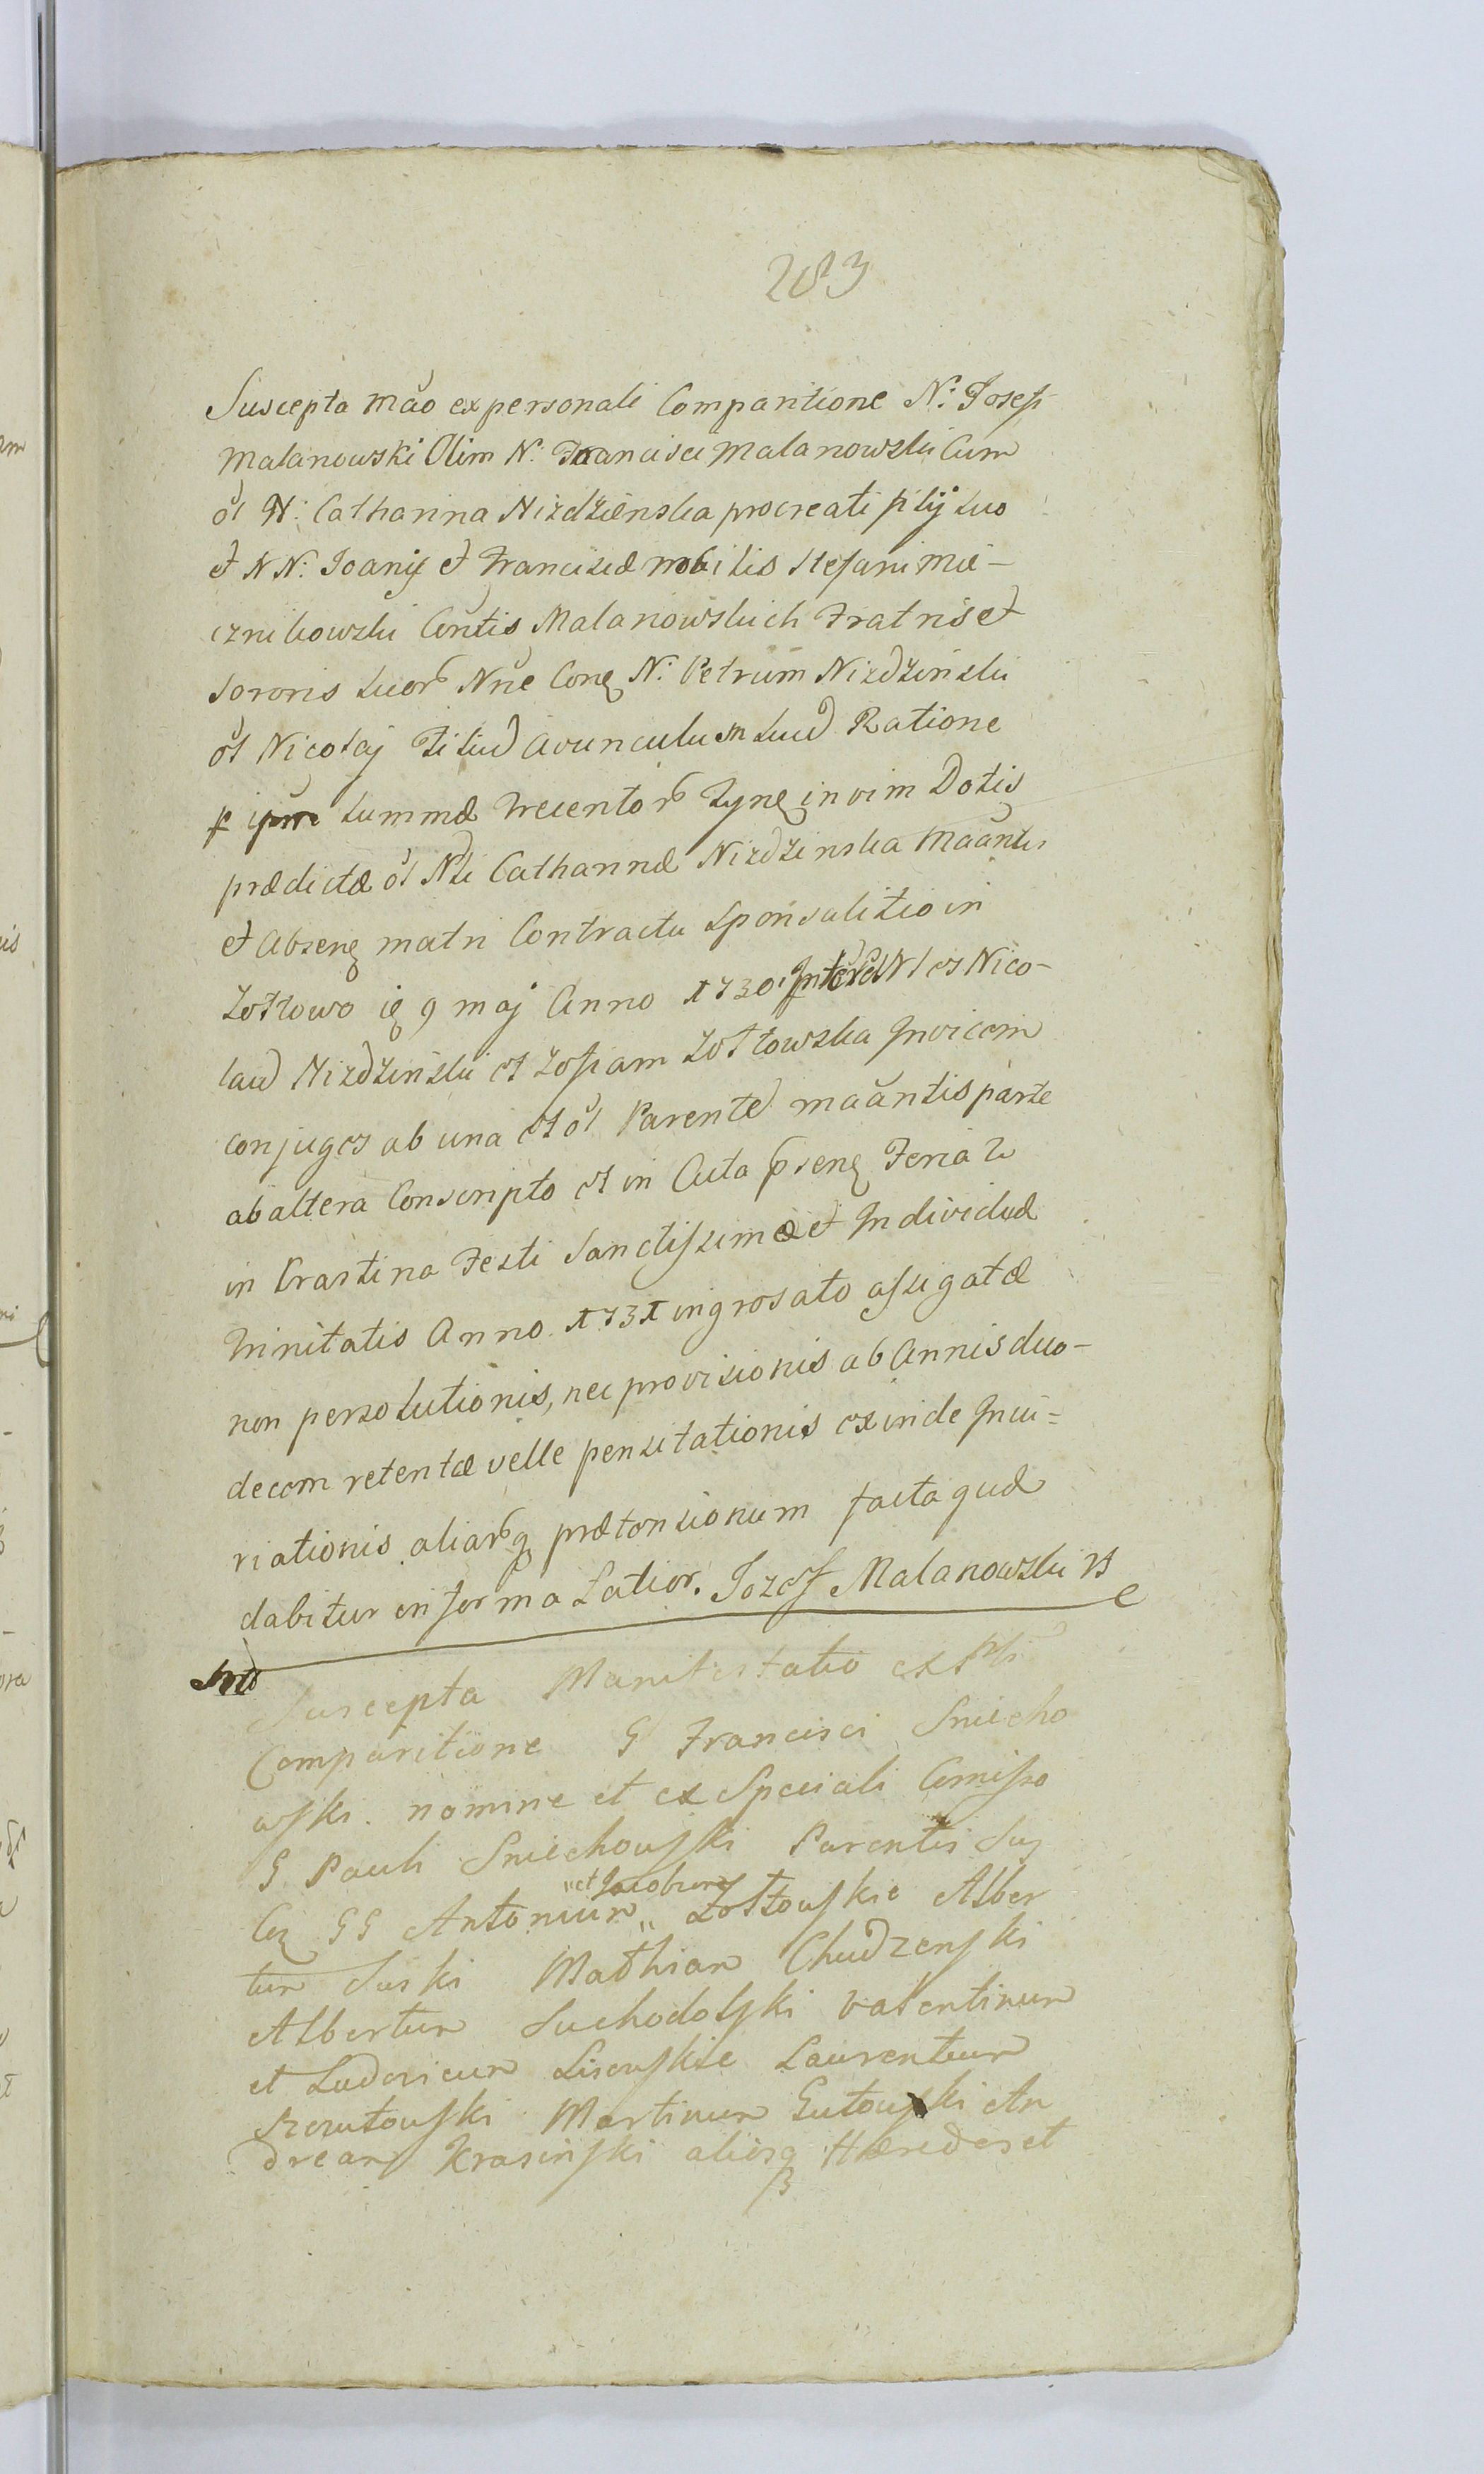 283
Suscepta mão ex personali Comparitione N: Josefi
Malanowski Olim N: Francisci Malanowski Cum
ol N: Catharina Nizdzinska procreati filij suo
et NN: Joanis et Franciscæ nobilis Stefani Mie-
cznikowski Contis Malanowskich Fratris et
Sororis suor Nne Conq N: Petrum Nizdzinski
ol Nicolaj Filiud avunculum suud Ratione
summæ Trecentor Tynq in vim Dotis
prædictæ ol Catharinæ Nizdzinska Maantis
et absenq matri Contractu Sponsalitio in
Zołtowo 9 maj Anno 1730 Nico-
laud Nizdzinski et Zofiam Zołtowska Invicem
conjuges ab una et ol Parente maantis parte
ab altera Conscripto et in Acta psenq Feria 2
in Crastina Festi Sanctissimæ et Individuæ
Trinitatis Anno 1731 ingrosato assigatæ
non persolutionis, nec provisionis ab Annis duo-
decem retentæ velle pensitationis exinde Inju=
riationis aliarq prætensionum facta quæ
dabitur in forma Latior. Jozef Malanowski
Suscepta Manifestatio ex Psli
Comparitione G Francisci Sniecho
wski nomine et ex Speciali Comisso
G Pauli Sniechowski Parentis Sui
Cq GG Antonium " Zołtowskie Alber
"et Jacobum
tum Suski Mathiam Chudzenski
Albertum Suchodolski Valentinum
et Ludovicum Lisowskie Laurentum
Szomtowski Martinum Gutowski An
dream Krasinski aliosq Hæredes et